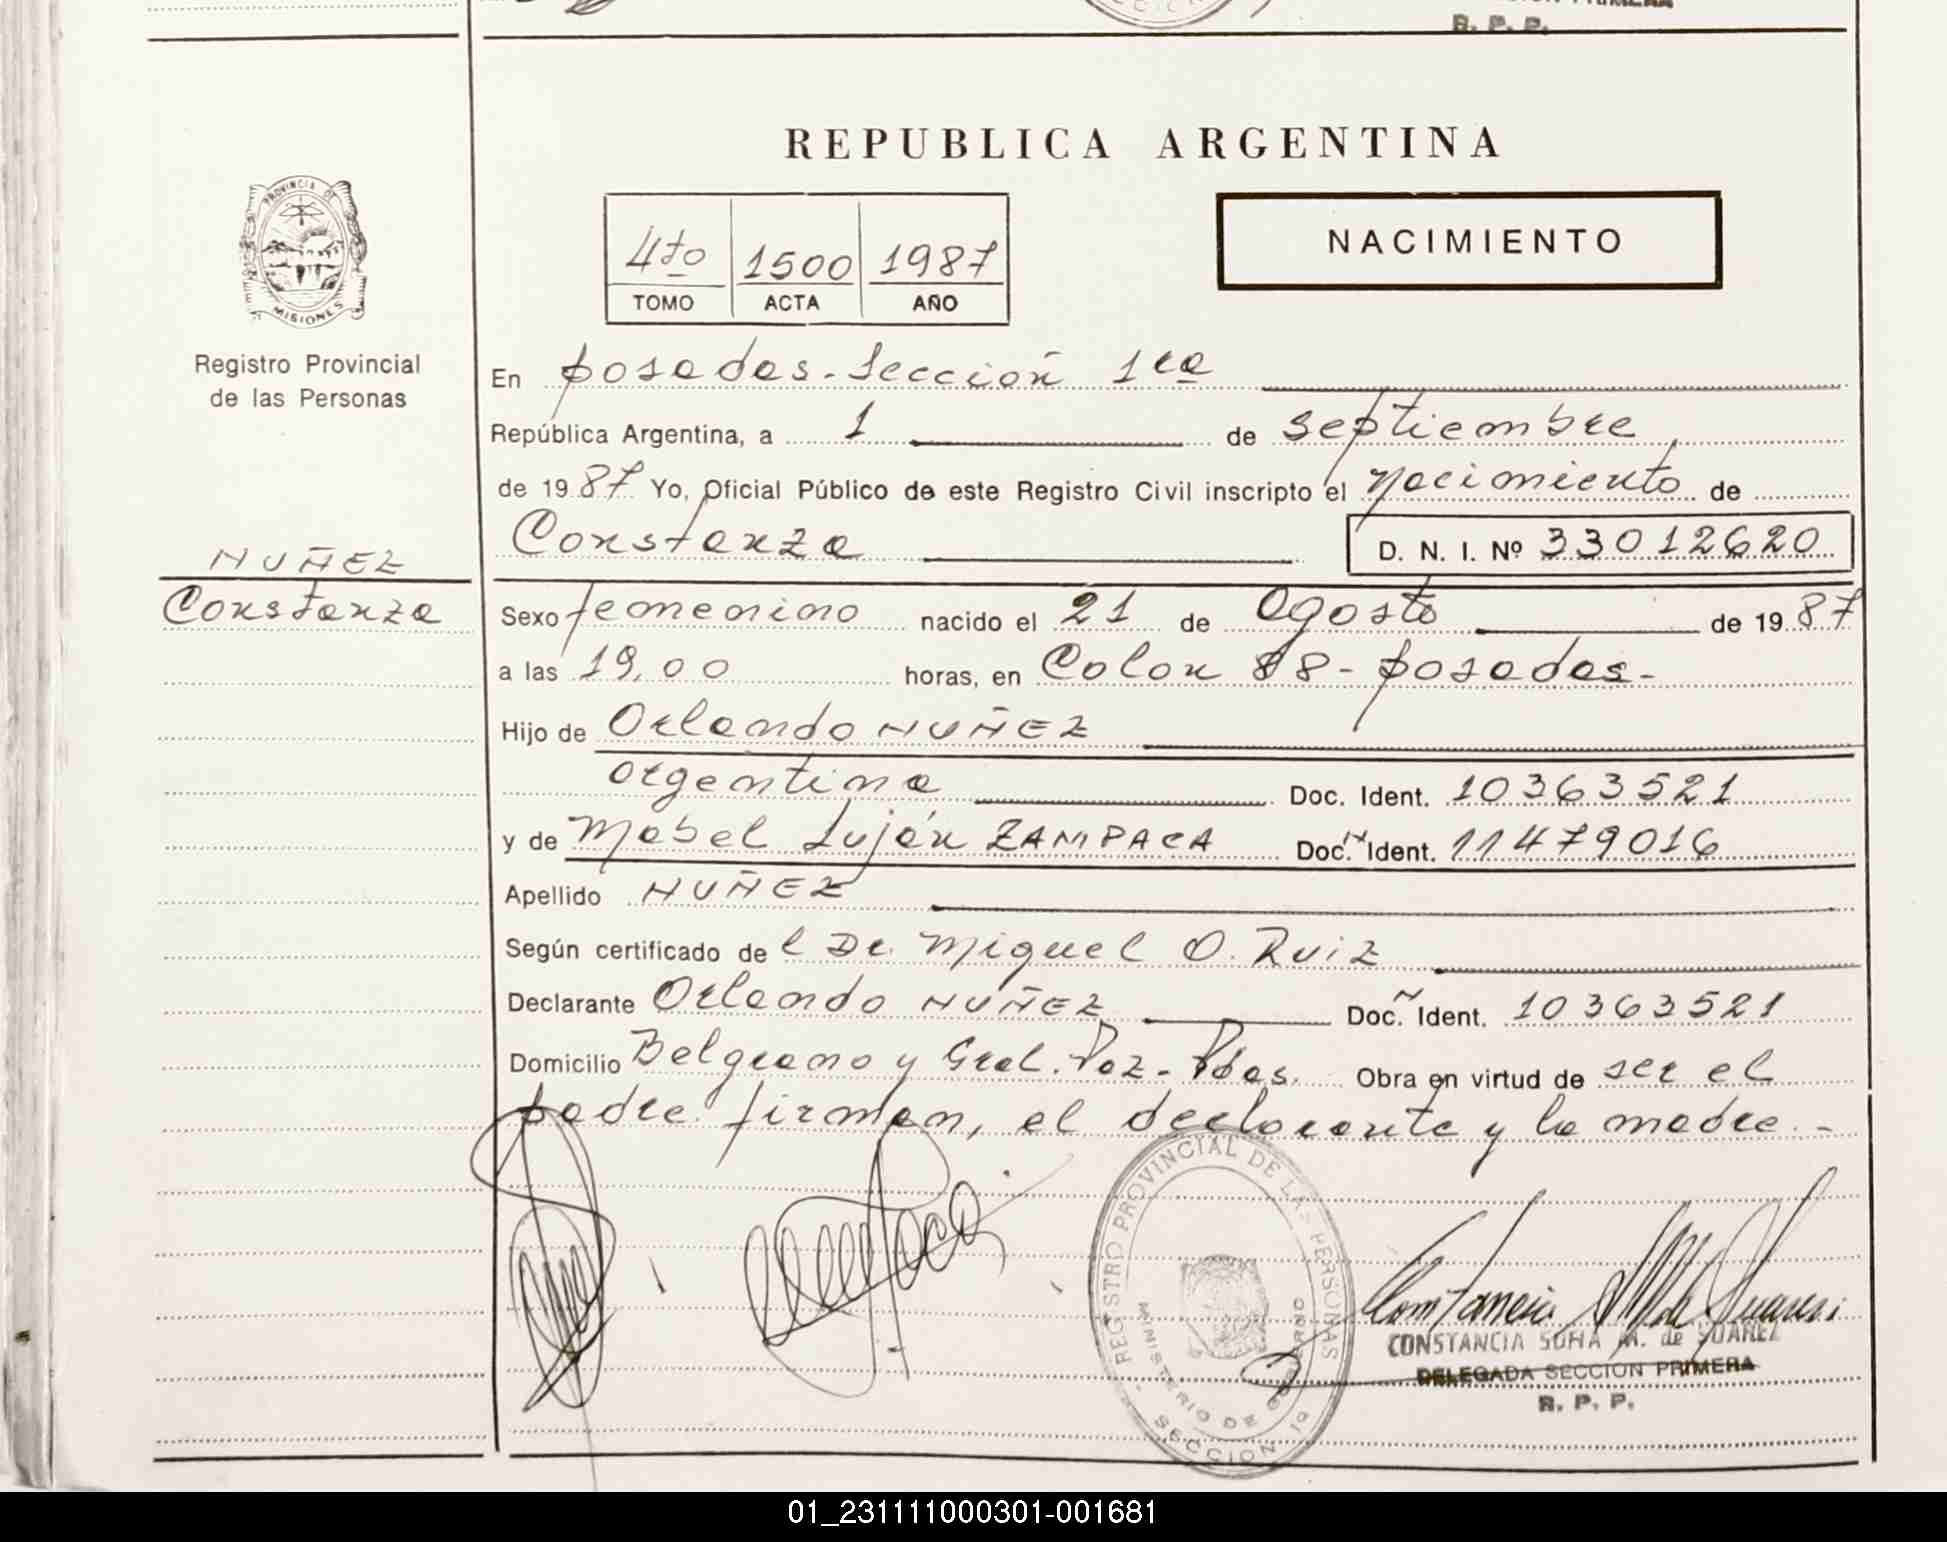 R. P. P.
REPUBLICA ARGENTINA
PROVINCIA DE
MISIONES
4to 1500 1987
TOMO ACTA AÑO
NACIMIENTO
Registro Provincial
de las Personas
En posadas - Sección 1ra
República Argentina, a 1 de septiembre
de 1987 Yo, Oficial Público de este Registro Civil inscripto el nacimiento de
Constanza D. N. I. Nº 33012620
NUÑEZ
Constanza
Sexo femenino nacido el 21 de Agosto de 1987
a las 19,00 horas, en Colon 88 - posadas -
Hijo de Orlando NUÑEZ
argentina Doc. Ident. 10363521
y de Mabel Luján ZAMPACA Doc. Ident. 11479016
Apellido NUÑEZ
Según certificado de l Dr. Miguel O. Ruiz
Declarante Orlando NUÑEZ Doc. Ident. 10363521
Domicilio Belgrano y Gral. Paz - Pdas. Obra en virtud de ser el
padre. firman, el declarante y la madre. -
REGISTRO PROVINCIAL DE LAS PERSONAS
MINISTERIO DE GOBIERNO
SECCION 1a
CONSTANCIA SUHA M. de SUAREZ
DELEGADA SECCION PRIMERA
R. P. P.
01_231111000301-001681